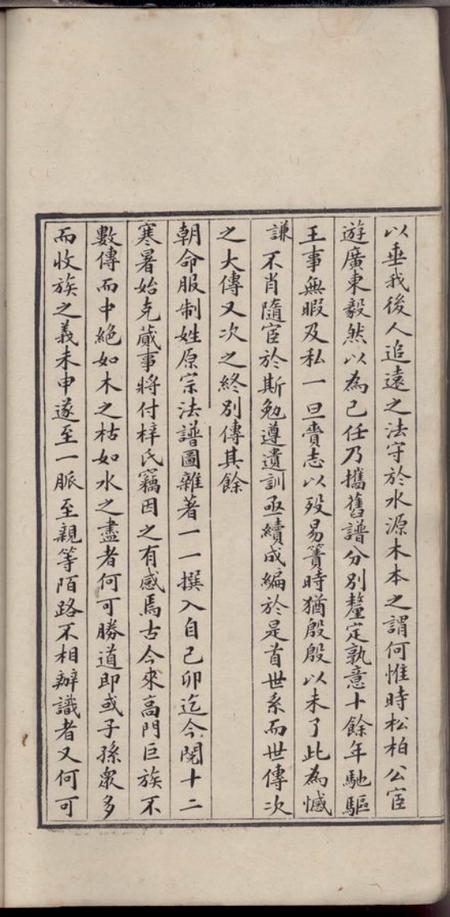 以垂我後人追遠之法守於水源木本之謂何惟時松柏公宦
遊廣東毅然以為己任乃攜舊譜分別釐定孰意十餘年馳驅
王事無暇及私一旦賫志以歿易簀時猶殷殷以未了此為憾
謙不肖隨宦於斯勉遵遺訓亟續成編於是首世系而世傳次
之大傳又次之終別傳其餘
朝命服制姓原宗法譜圖雜著一一撰入自己卯迄今閱十二
寒暑始克蕆事將付梓氏竊因之有感焉古今來高門巨族不
數傳而中絕如木之枯如水之盡者何可勝道即或子孫衆多
而收族之義未申遂至一脈至親等陌路不相辦識者又何可